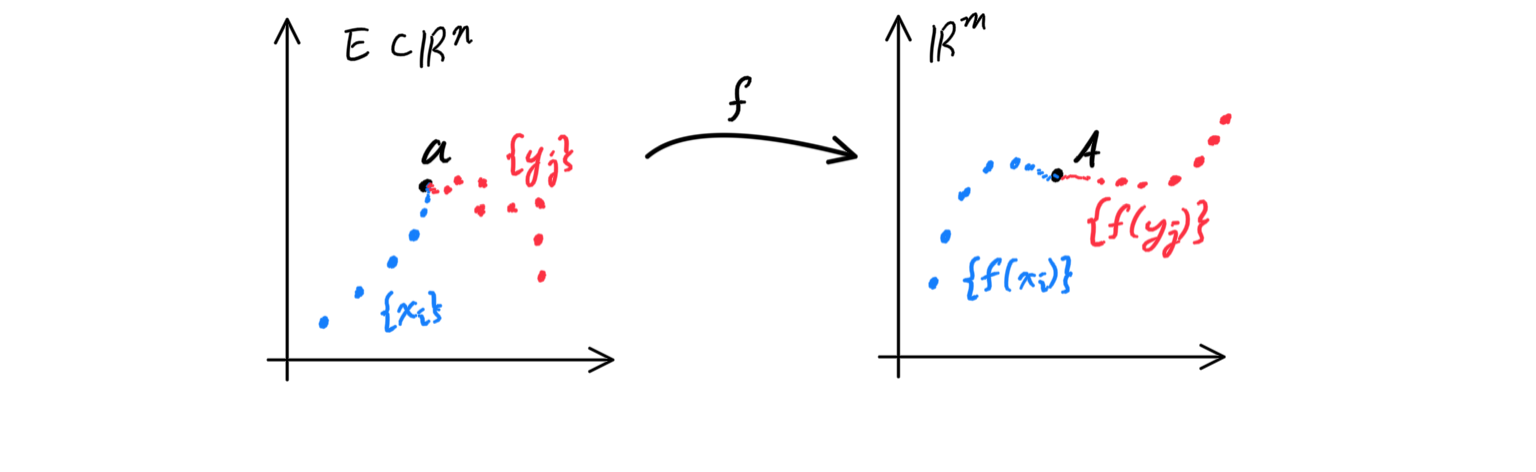 E ⊂ ℝⁿ
a
{yⱼ}
{xᵢ}
f
ℝᵐ
A
{f(yⱼ)}
{f(xᵢ)}